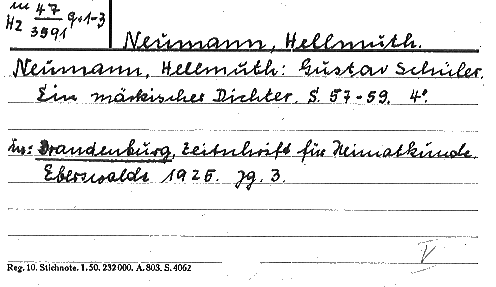 in
Hz 47/3591 9.1-3
Neumann, Hellmuth.
Neumann, Hellmuth: Gustav Schüler.
Ein märkischer Dichter. S. 57-59. 4°.
in: Brandenburg, Zeitschrift für Heimatkunde.
Eberswalde 1925. Jg. 3.
V
Reg. 10. Stichnote. 1. 50. 232 000. A. 803. S. 4062